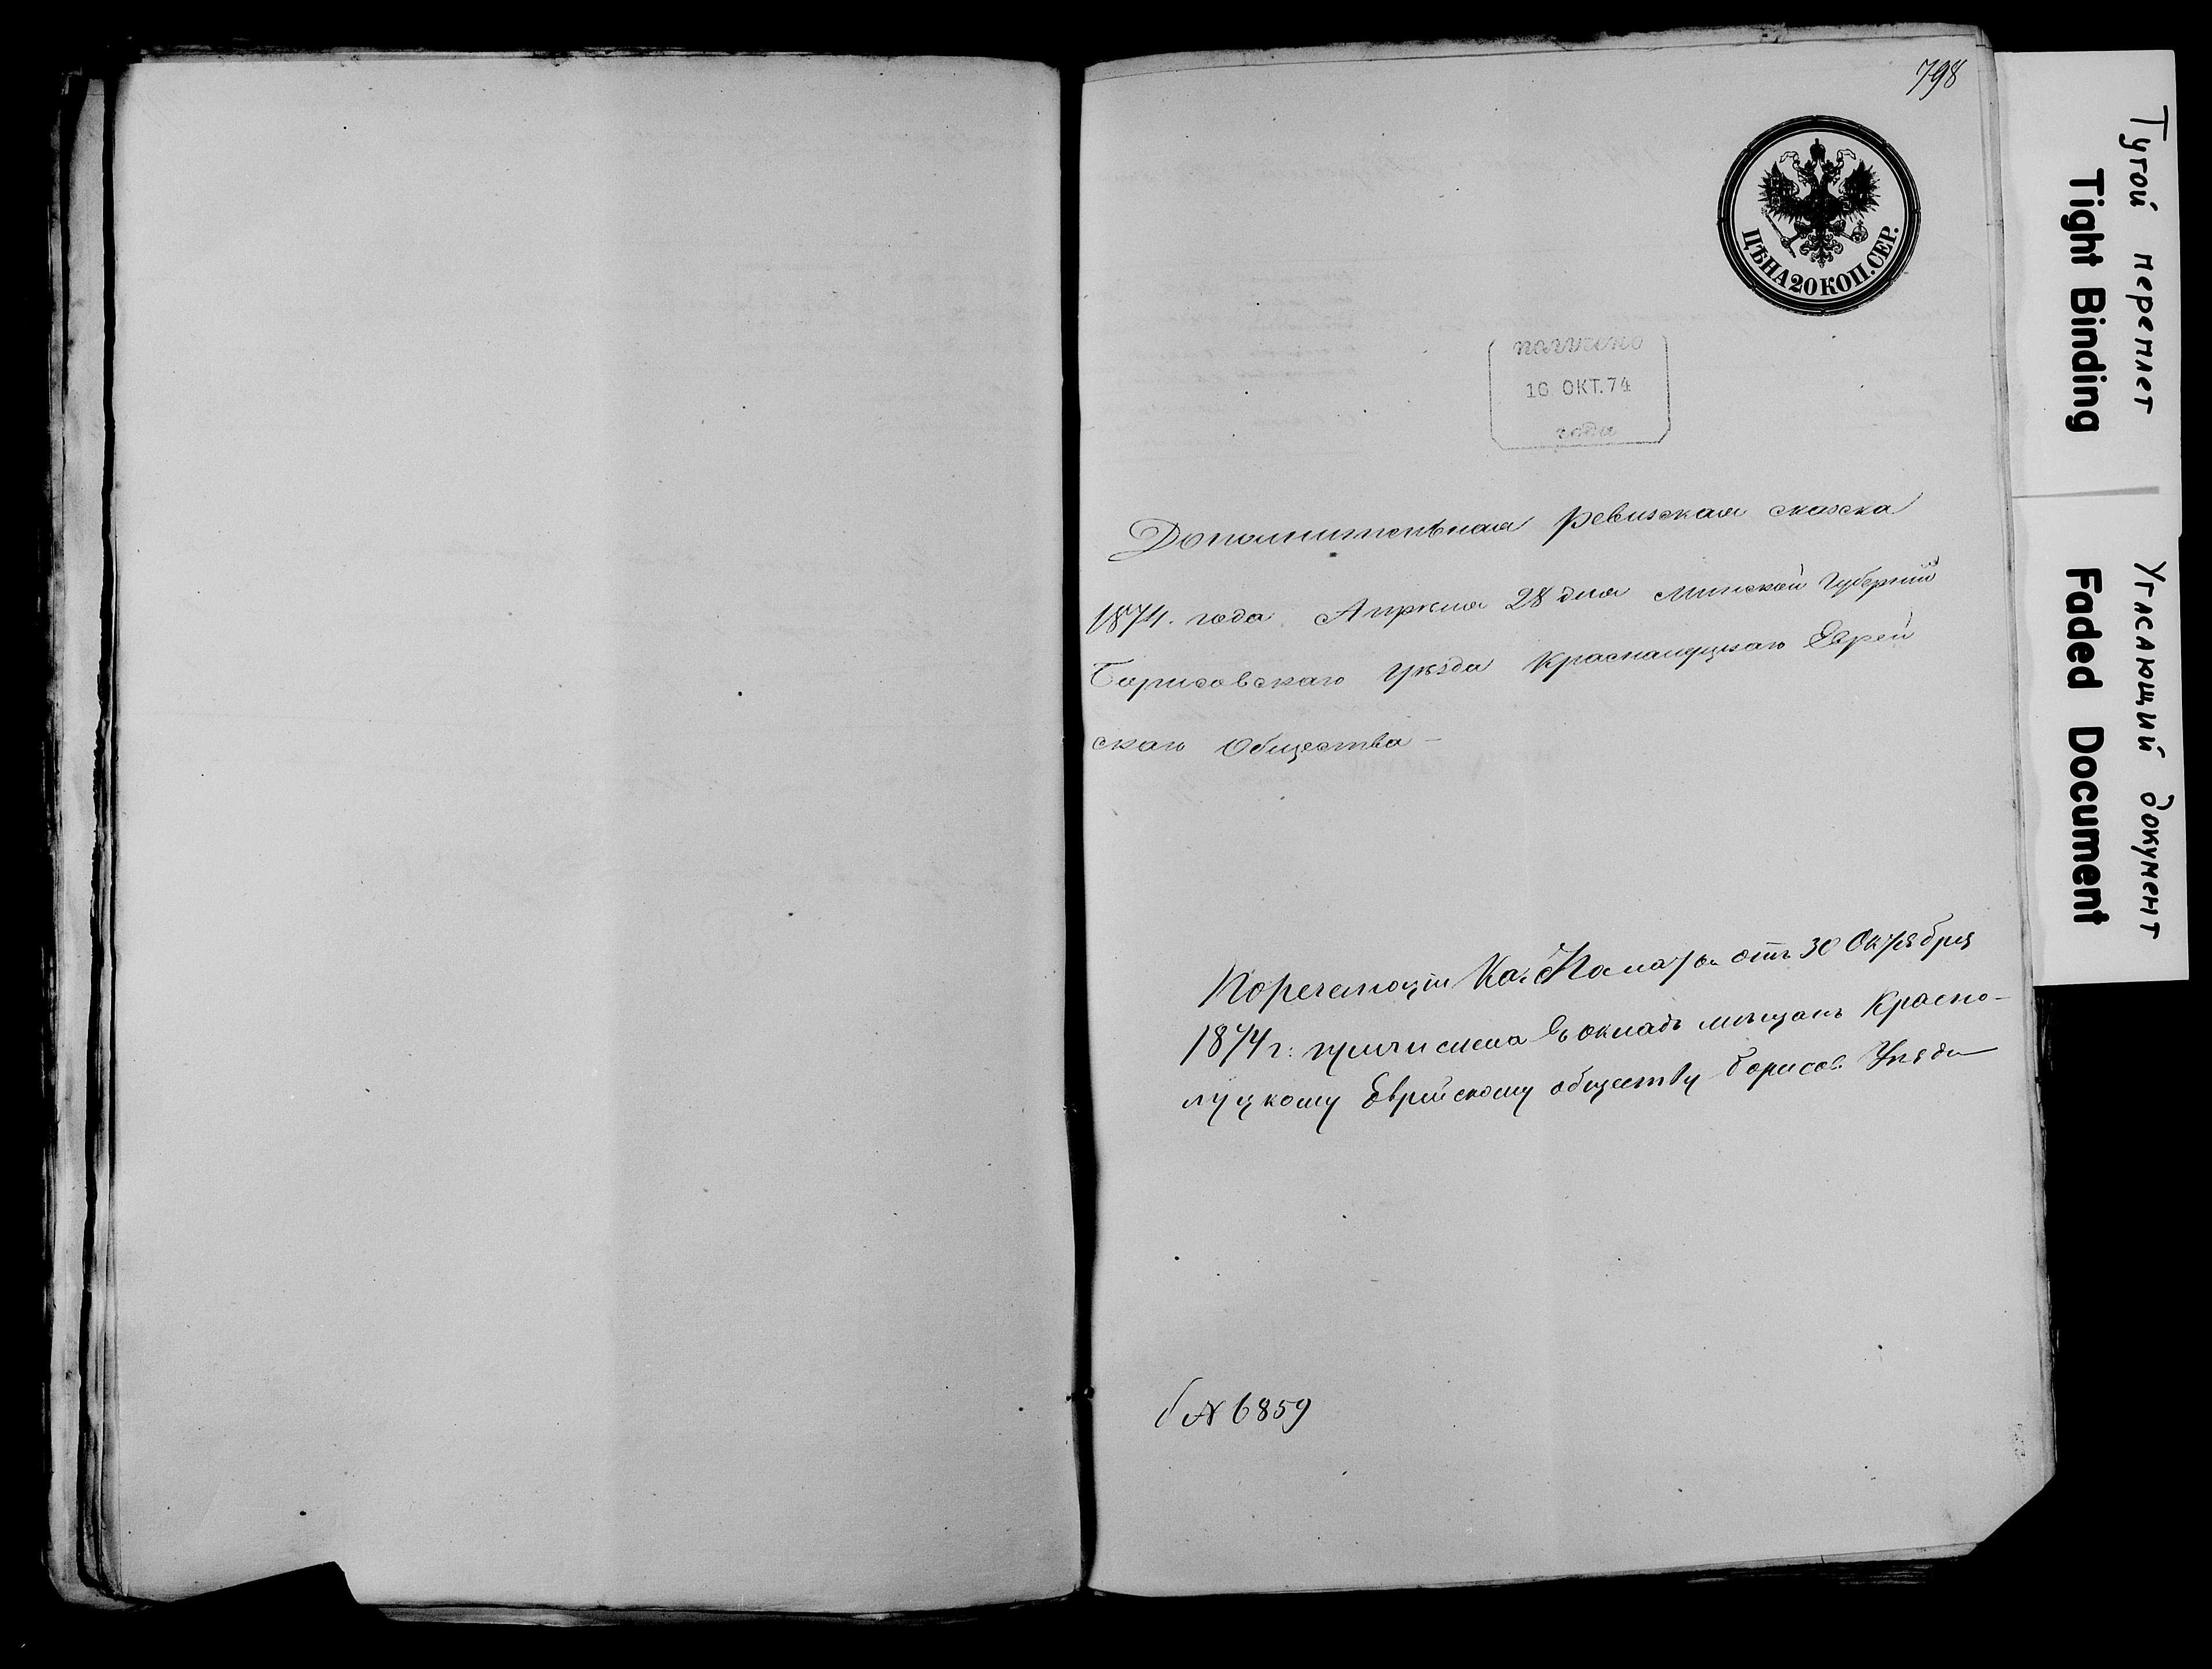 798
ЦѢНА 20 КОП. СЕР.
получено
10 ОКТ. 74
года
Дополнительная ревизская сказка
1874. года Апрѣля 28 дня Минской Губерніи
Борисовскаго уѣзда Краснолуцкаго Еврей
скаго Общества -
По резолюціи Каз Палаты отъ 30 Октября
1874 г: причислена въ окладъ мѣщанъ Красно-
луцкому Еврейскому обществу Борисов. Уѣзда
№ 6859
Тугой переплет
Tight Binding
Угасающий документ
Faded Document